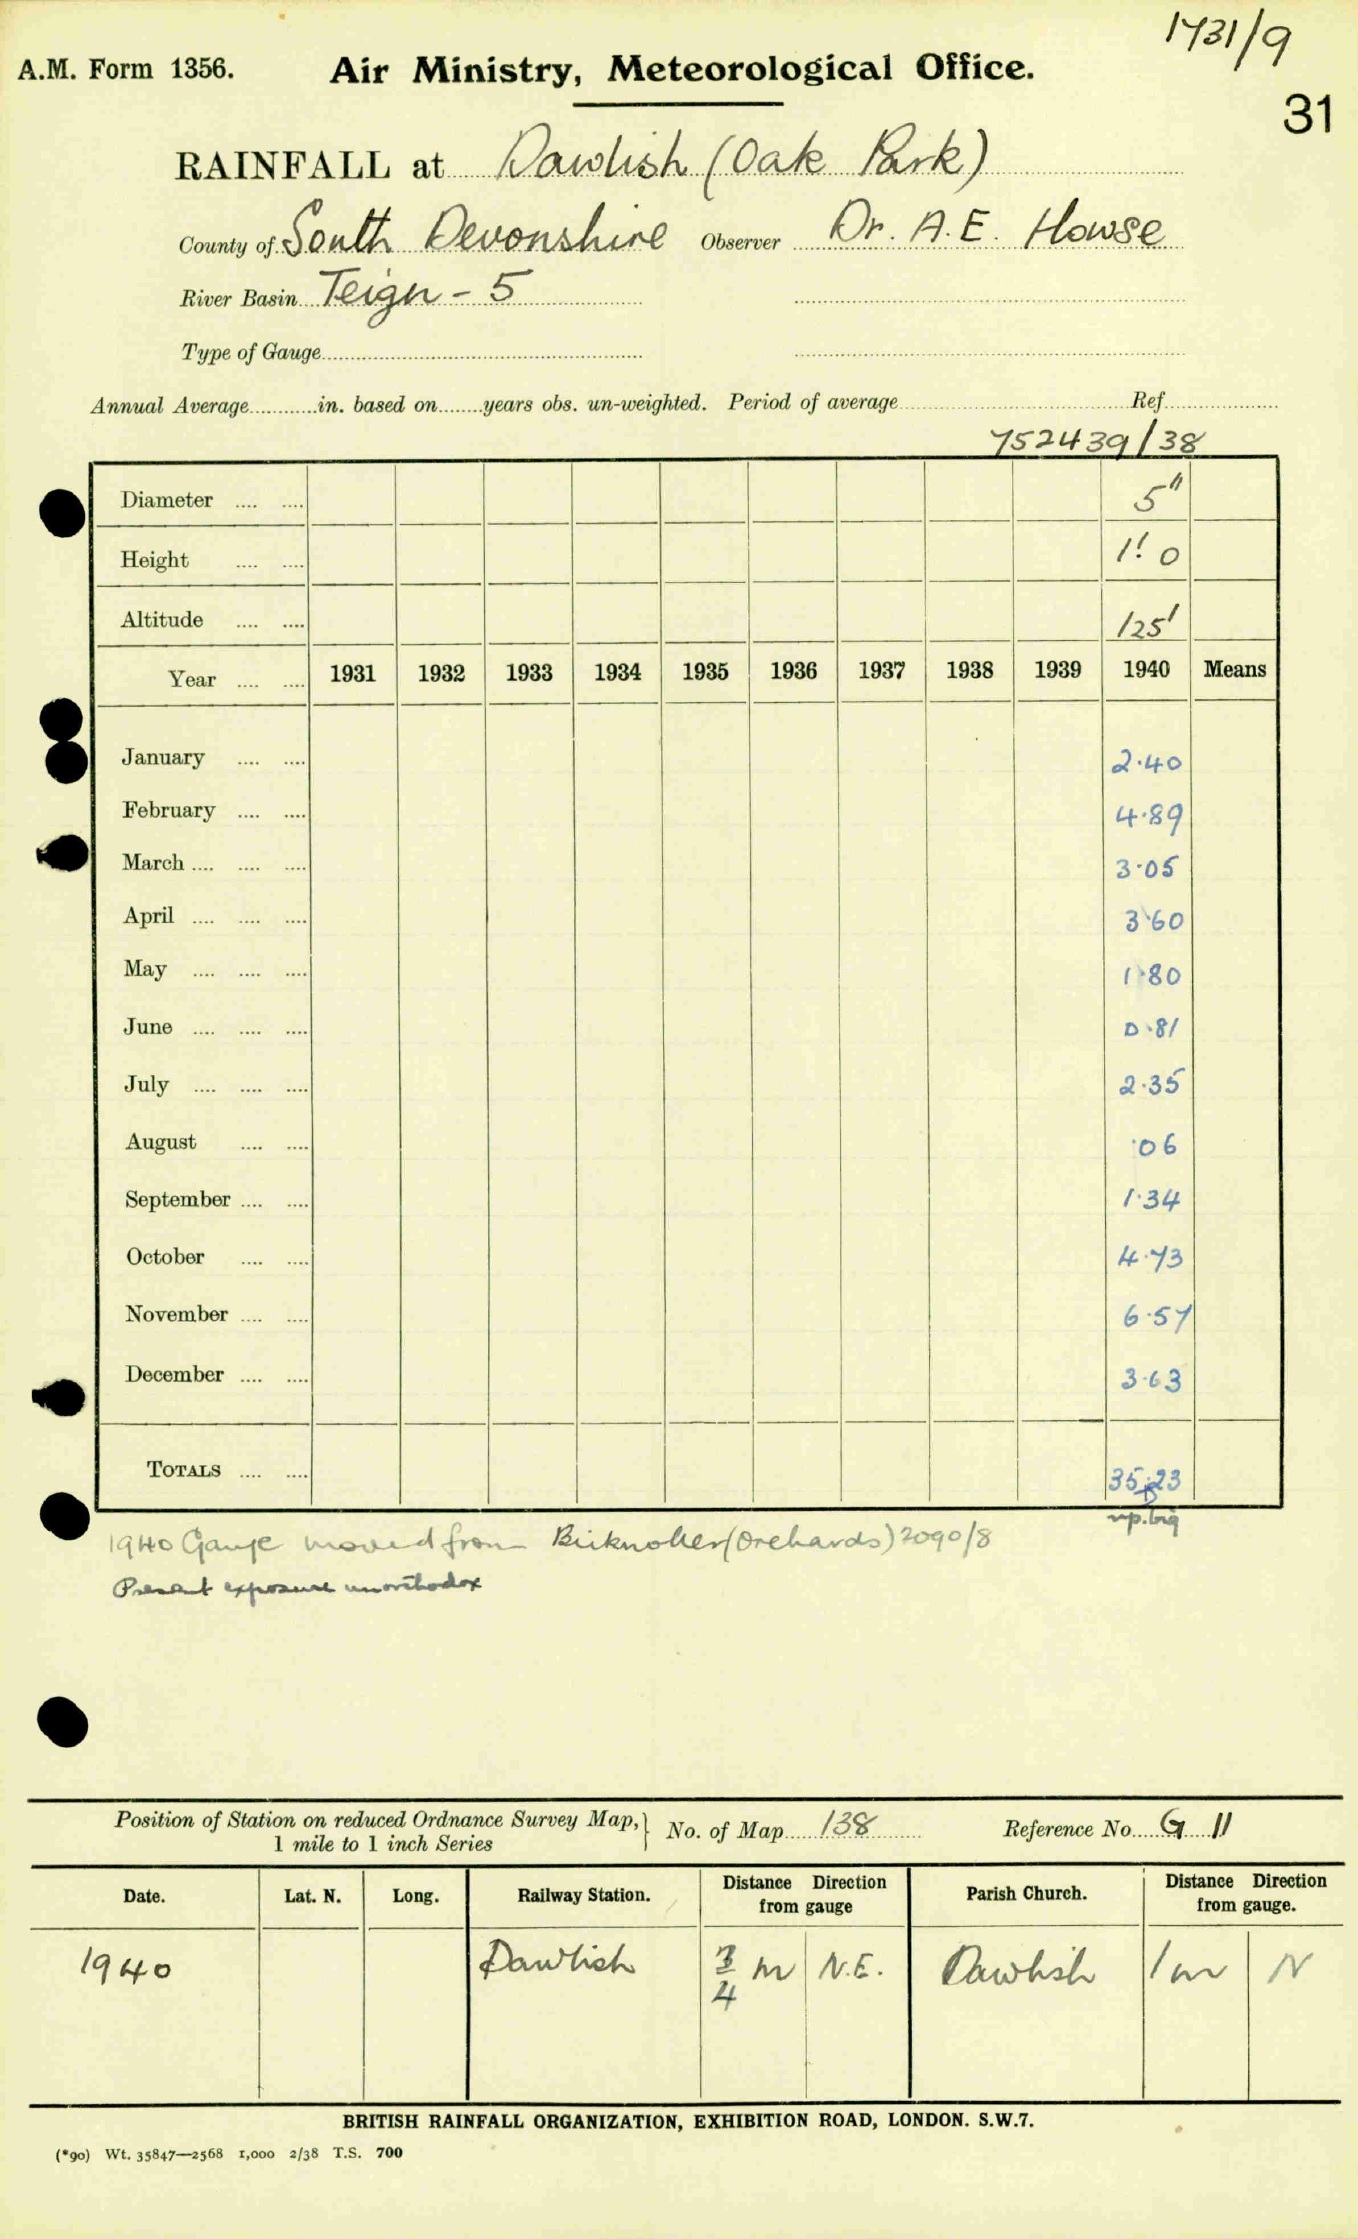 1731/9
A.M. Form 1356. Air Ministry, Meteorological Office.
31
RAINFALL at Dawlish (Oak Park)
County of South Devonshire Observer Dr. A.E. Howse
River Basin Teign - 5
Type of Gauge
Annual Average in. based on years obs. un-weighted. Period of average Ref
752439/38
Diameter 5"
Height 1' 0
Altitude 125'
Year 1931 1932 1933 1934 1935 1936 1937 1938 1939 1940 Means
January 2·40
February 4·89
March 3·05
April 3·60
May 1·80
June 0·81
July 2·35
August ·06
September 1·34
October 4·73
November 6·57
December 3·63
TOTALS 35·23
1940 Gauge moved from (Orchards) 2090/8
Present exposure unorthodox
Position of Station on reduced Ordnance Survey Map, 1 mile to 1 inch Series No. of Map 138 Reference No. G 11
Date. Lat. N. Long. Railway Station. Distance from gauge Direction Parish Church. Distance from gauge. Direction
1940 Dawlish 3/4 m N.E. Dawlish 1 m N
BRITISH RAINFALL ORGANIZATION, EXHIBITION ROAD, LONDON. S.W.7.
(*90) Wt. 35847—2568 1,000 2/38 T.S. 700